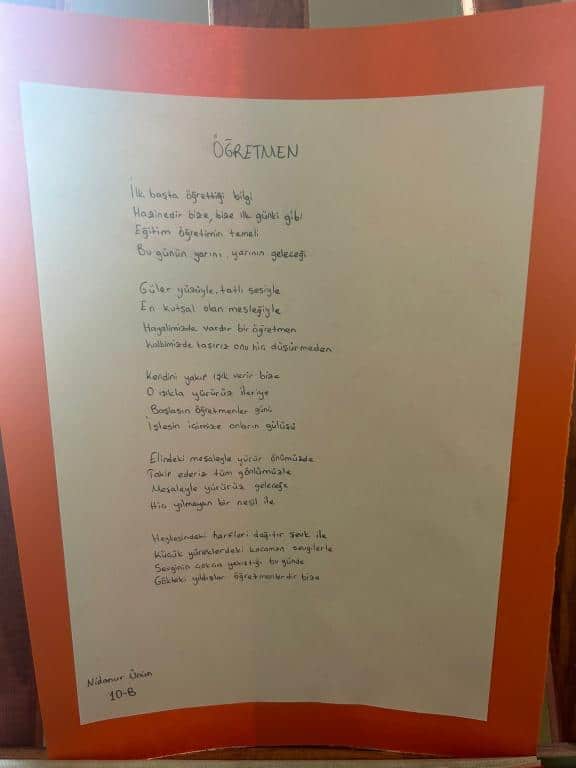 ÖĞRETMEN
İlk başta öğrettiği bilgi
Hazinedir bize, bize ilk günki gibi
Eğitim öğretimin temeli
Bu günün yarını, yarının geleceği
Güler yüzüyle, tatlı sesiyle
En kutsal olan mesleğiyle
Hayalimizde vardır bir öğretmen
kalbimizde taşırız onu hiç düşürmeden
Kendini yakıp ışık verir bize
O ışıkla yürürüz ileriye
Başlasın öğretmenler günü
İşlesin içimize onların gülüşü
Elindeki meşaleyle yürür önümüzde
Takip ederiz tüm gönlümüzle
Meşaleyle yürürüz geleceğe
Hiç yılmayan bir nesil ile
Heybesindeki harfleri dağıtır şevk ile
Küçük yüreklerdeki kocaman sevgilerle
Sevginin çokça yakıştığı bu günde
Gökteki yıldızlar öğretmenlerdir bize
Nidanur
10-B